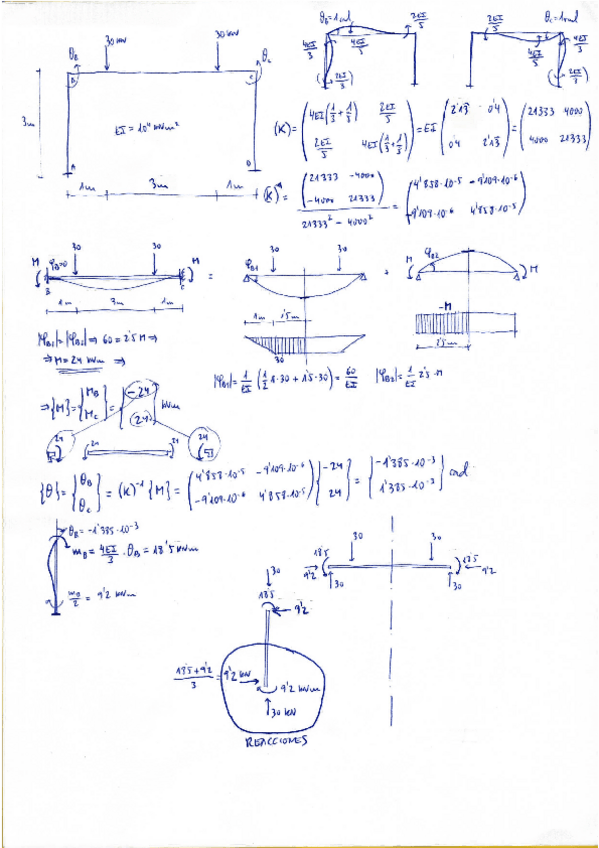 30 kN 30 kN
θB θC
B C
3m
EI = 10⁴ kNm²
A D
1m 3m 1m
θB = 1 rad 2EI/5
4EI/3 4EI/5
2EI/3
2EI/5 θC = 1 rad
4EI/5 4EI/3
2EI/3
(K) = ( 4EI(1/3 + 1/5) 2EI/5 ; 2EI/5 4EI(1/3 + 1/5) ) = EI ( 2'13 0'4 ; 0'4 2'13 ) = ( 21333 4000 ; 4000 21333 )
(K)⁻¹ = ( 21333 -4000 ; -4000 21333 ) / 21333² - 4000² = ( 4'858·10⁻⁵ -9'109·10⁻⁶ ; -9'109·10⁻⁶ 4'858·10⁻⁵ )
M φB=0 30 30 M = φB1 30 30 + M φB2 M
B C
1m 3m 1m
1m 1'5m
30
-M
2'5m
|φB1| = |φB2| ⇒ 60 = 2'5 M ⇒
⇒ M = 24 kNm ⇒
|φB1| = 1/EI (1/2 1·30 + 1'5·30) = 60/EI |φB2| = 1/EI 2'5·M
⇒ {M} = { MB ; MC } = { -24 ; 24 } kNm
24 24 24 24
{θ} = { θB ; θC } = (K)⁻¹ {M} = ( 4'858·10⁻⁵ -9'109·10⁻⁶ ; -9'109·10⁻⁶ 4'858·10⁻⁵ ) { -24 ; 24 } = { -1'385·10⁻³ ; 1'385·10⁻³ } rad
θB = -1'385·10⁻³
mB = 4EI/3 · θB = 18'5 kNm
mB/2 = 9'2 kNm
30 30
18'5 18'5
9'2 9'2
30 30
30
18'5
9'2
18'5 + 9'2 / 3 = 9'2 kN
9'2 kNm
30 kN
REACCIONES